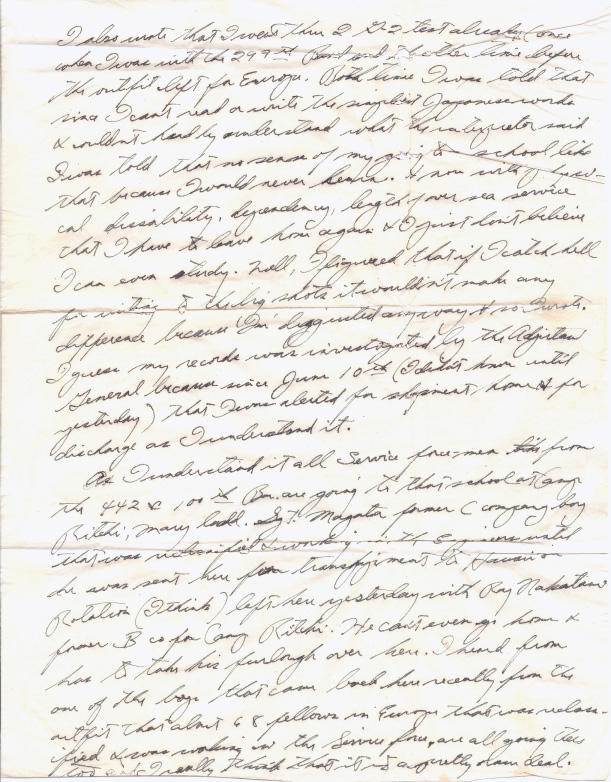 I also wrote that I went thru 2 G-2 test already (once
when I was with the 299th and other time before
the outfit left for Europe. Both time I was told that
since I cant read or write the simplist Japanese words
& couldn't hardly understand what the interpretor said
I was told that no sense of my going to school like
that because I would never learn. & now with physi-
cal dissability, dependency, length of over sea service
that I have to leave home again & I just don't believe
I can even study. Well, I figured that if I catch hell
for writing to the big shots it wouldn't make any
difference because I'm disgusted anyway & so I wrote.
I guess my records was investigated by the Adjutan
General because since June 10th (I didn't know until
yesterday) that I was alerted for shipment home & for
discharge as I understand it.
As I understand it all Service force men from
the 442 & 100th Bn. are going to that school at Camp
Ritchi, mary land. Sgt. Magata former C company boy
that was reclassified & working in the Engineers until
he was sent here for transfement to Hawaii on
Rotation (I think) left here yesterday with Ray Nakatani
former B co for Camp Ritchi. He can't even go home &
has to take his furlough over here. I heard from
one of the boys that came back here recently from the
outfit that almst 68 fellows in Europe that was reclass-
ified & was working in the Service force, are all going there
too & I really think that it is a pretty damn deal.